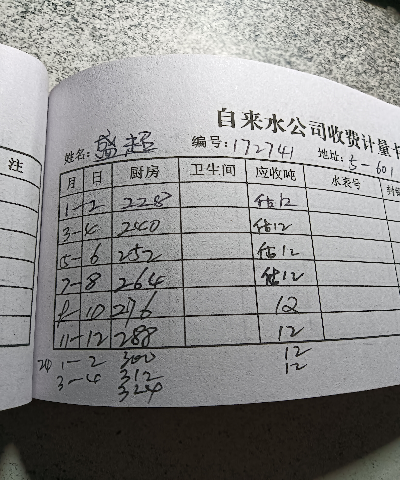 自来水公司收费计量卡
姓名：盛超 编号：172741 地址：5-601
注
月 日 厨房 卫生间 应收吨 水表号
1-2 228 估12
3-4 240 估12
5-6 252 估12
7-8 264 估12
10 276 12
11-12 288 12
24 1-2 300 12
3-4 312 12
324